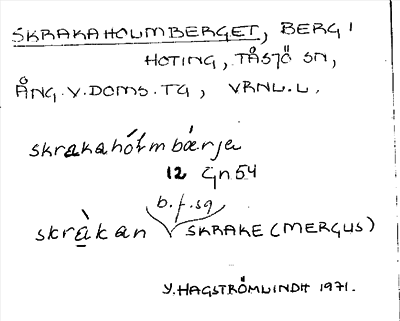 SKRAKAHOLMBERGET, BERG I
HOTING, TÅSJÖ SN,
ÅNG. V. DOMS. TG, VRNL. L.
skrakahólmbárja
12 Gn54
b.f.sg
skràkan V SKRAKE (MERGUS)
Y. HAGSTRÖMLINDH 1971.